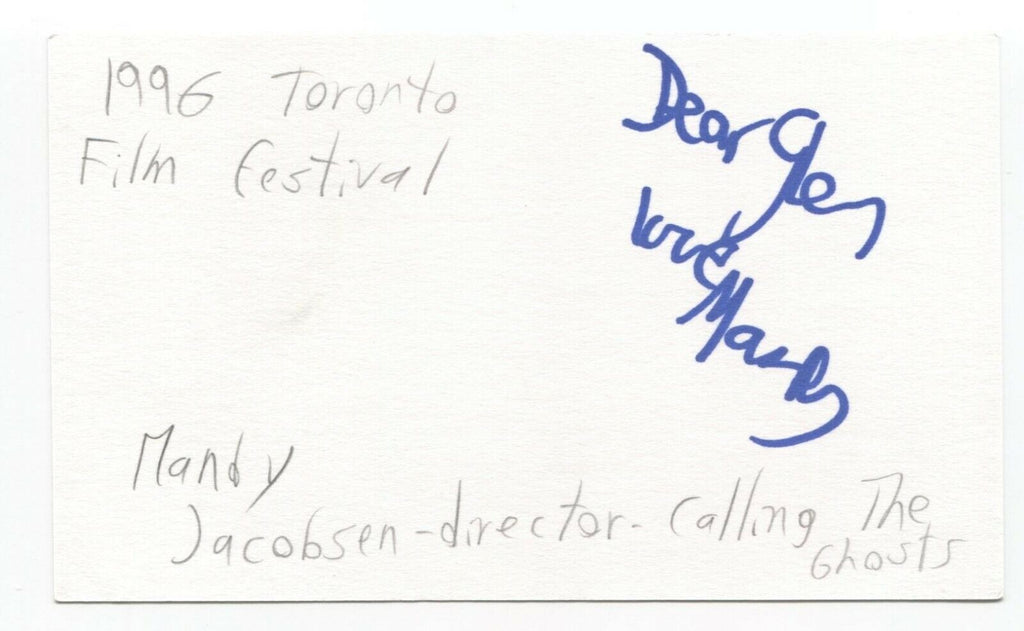 1996 Toronto
Film Festival
Dear Glen
love
Mandy
Mandy
Jacobsen-director-Calling The
Ghosts